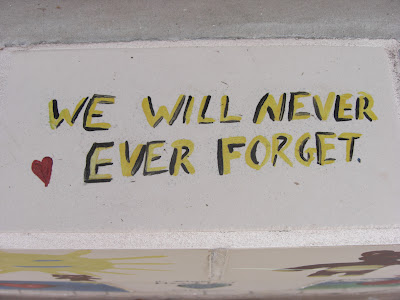 WE WILL NEVER
EVER FORGET.